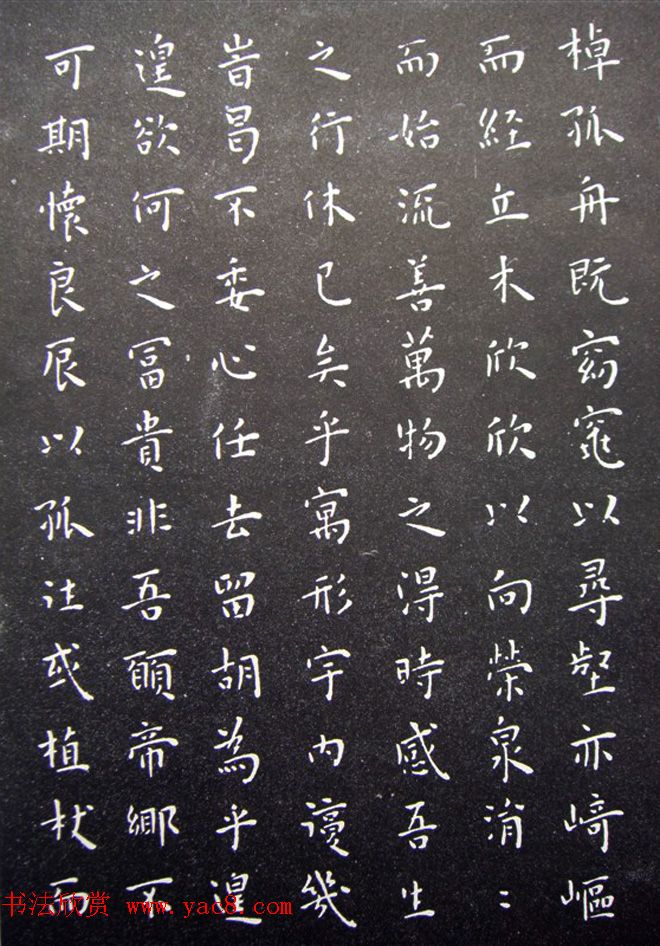 棹孤舟既窈窕以尋壑亦崎嶇
而經丘木欣欣以向榮泉涓〻
而始流善萬物之得時感吾生
之行休已矣乎寓形宇内復幾
旹曷不委心任去留胡為乎遑
遑欲何之富貴非吾願帝鄉不
可期懷良辰以孤往或植杖而
书法欣赏 www.yac8.com